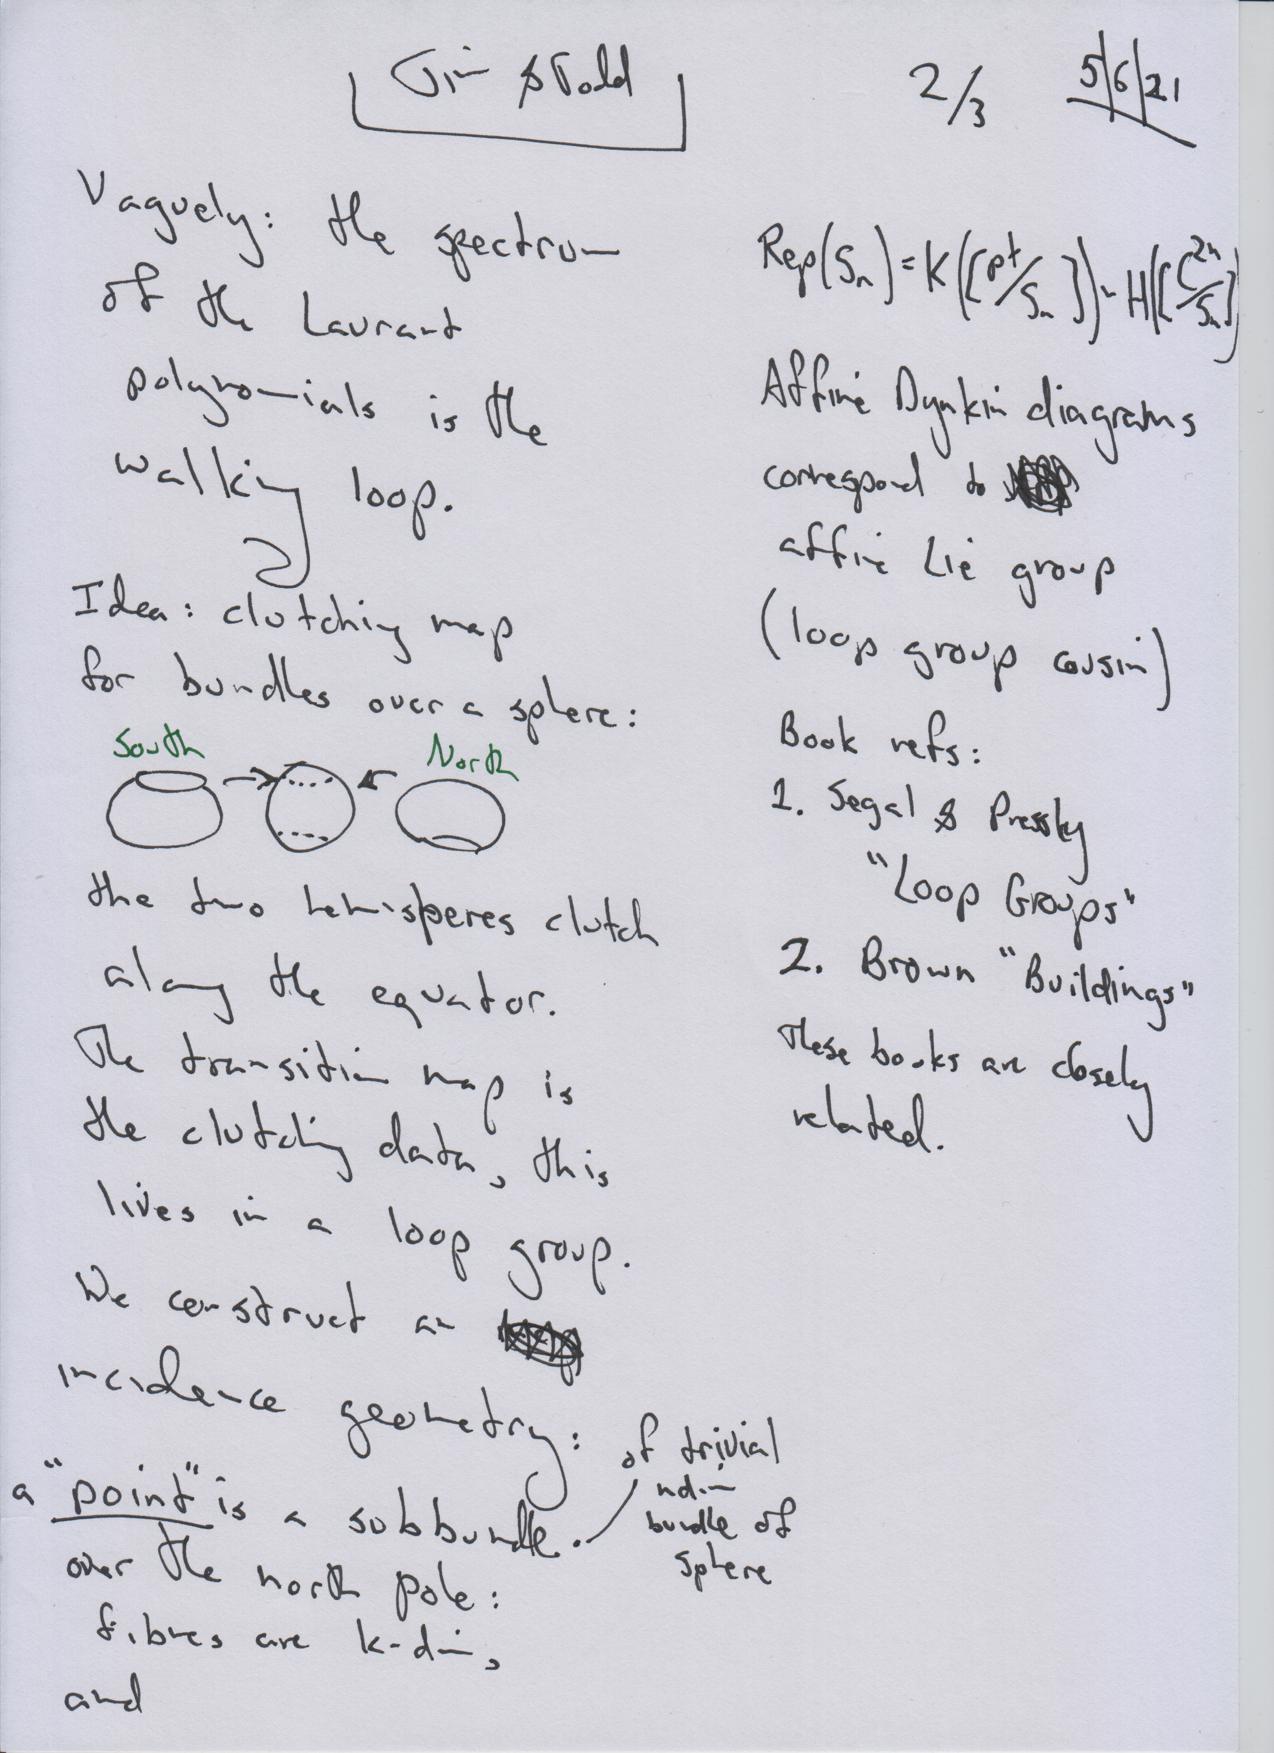 Jim & Todd
2/3
5/6/21
Vaguely: the spectrum
of the Laurant
polynomials is the
walking loop.
Idea: clutching map
for bundles over a sphere:
South
North
the two hemisperes clutch
along the equator.
The transition map is
the clutching data, this
lives in a loop group.
We construct an
incidence geometry:
a "point" is a subbundle.
of trivial
ndim
bundle of
sphere
over the north pole:
fibres are k-dim,
and
Rep(Sn) = K([pt/Sn]) ~ H([C^2n/Sn])
Affine Dynkin diagrams
correspond to
affine Lie group
(loop group cousin)
Book refs:
1. Segal & Pressly
"Loop Groups"
2. Brown "Buildings"
These books are closely
related.